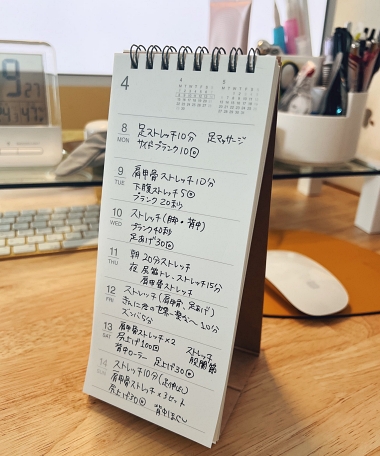 4
4
5
M T W T F S S
M T W T F S S
8
MON
足ストレッチ10分 足マッサージ
サイドプランク10回
9
TUE
肩甲骨ストレッチ10分
下腹ストレッチ5回
プランク20秒
10
WED
ストレッチ(脚・背中)
プランク40秒
足あげ30回
11
THU
朝 20分ストレッチ
夜 尻筋トレ、ストレッチ15分
肩甲骨ストレッチ
12
FRI
ストレッチ(肩甲骨、足あげ)
きんに君の世界一楽な 10分
ズンバ5分
13
SAT
肩甲骨ストレッチ×2 ストレッチ
尻上げ100回 股関節
背中ローラー 足上げ30回
14
SUN
ストレッチ10分
肩甲骨ストレッチ×3セット
尻上げ30回 背中ほぐし